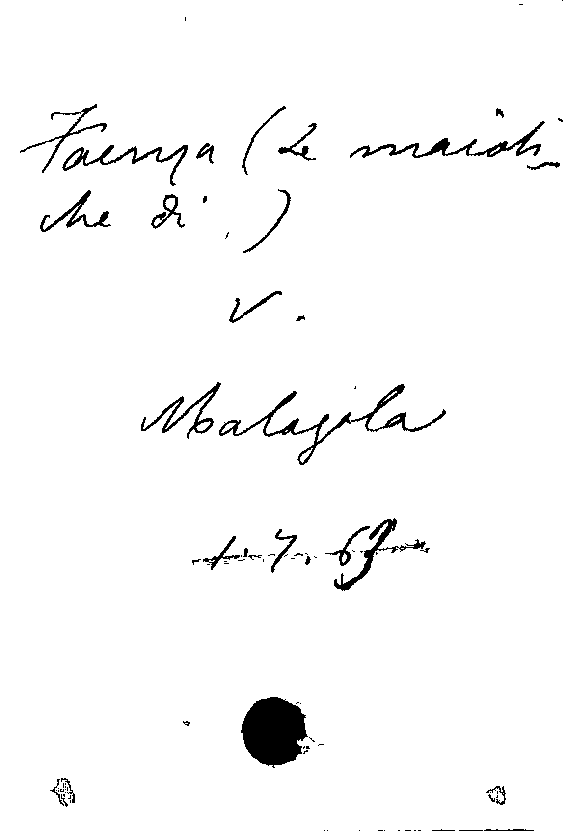 Faenza (Le maioli-
che di.)
V.
Malagola
1. 7. 69